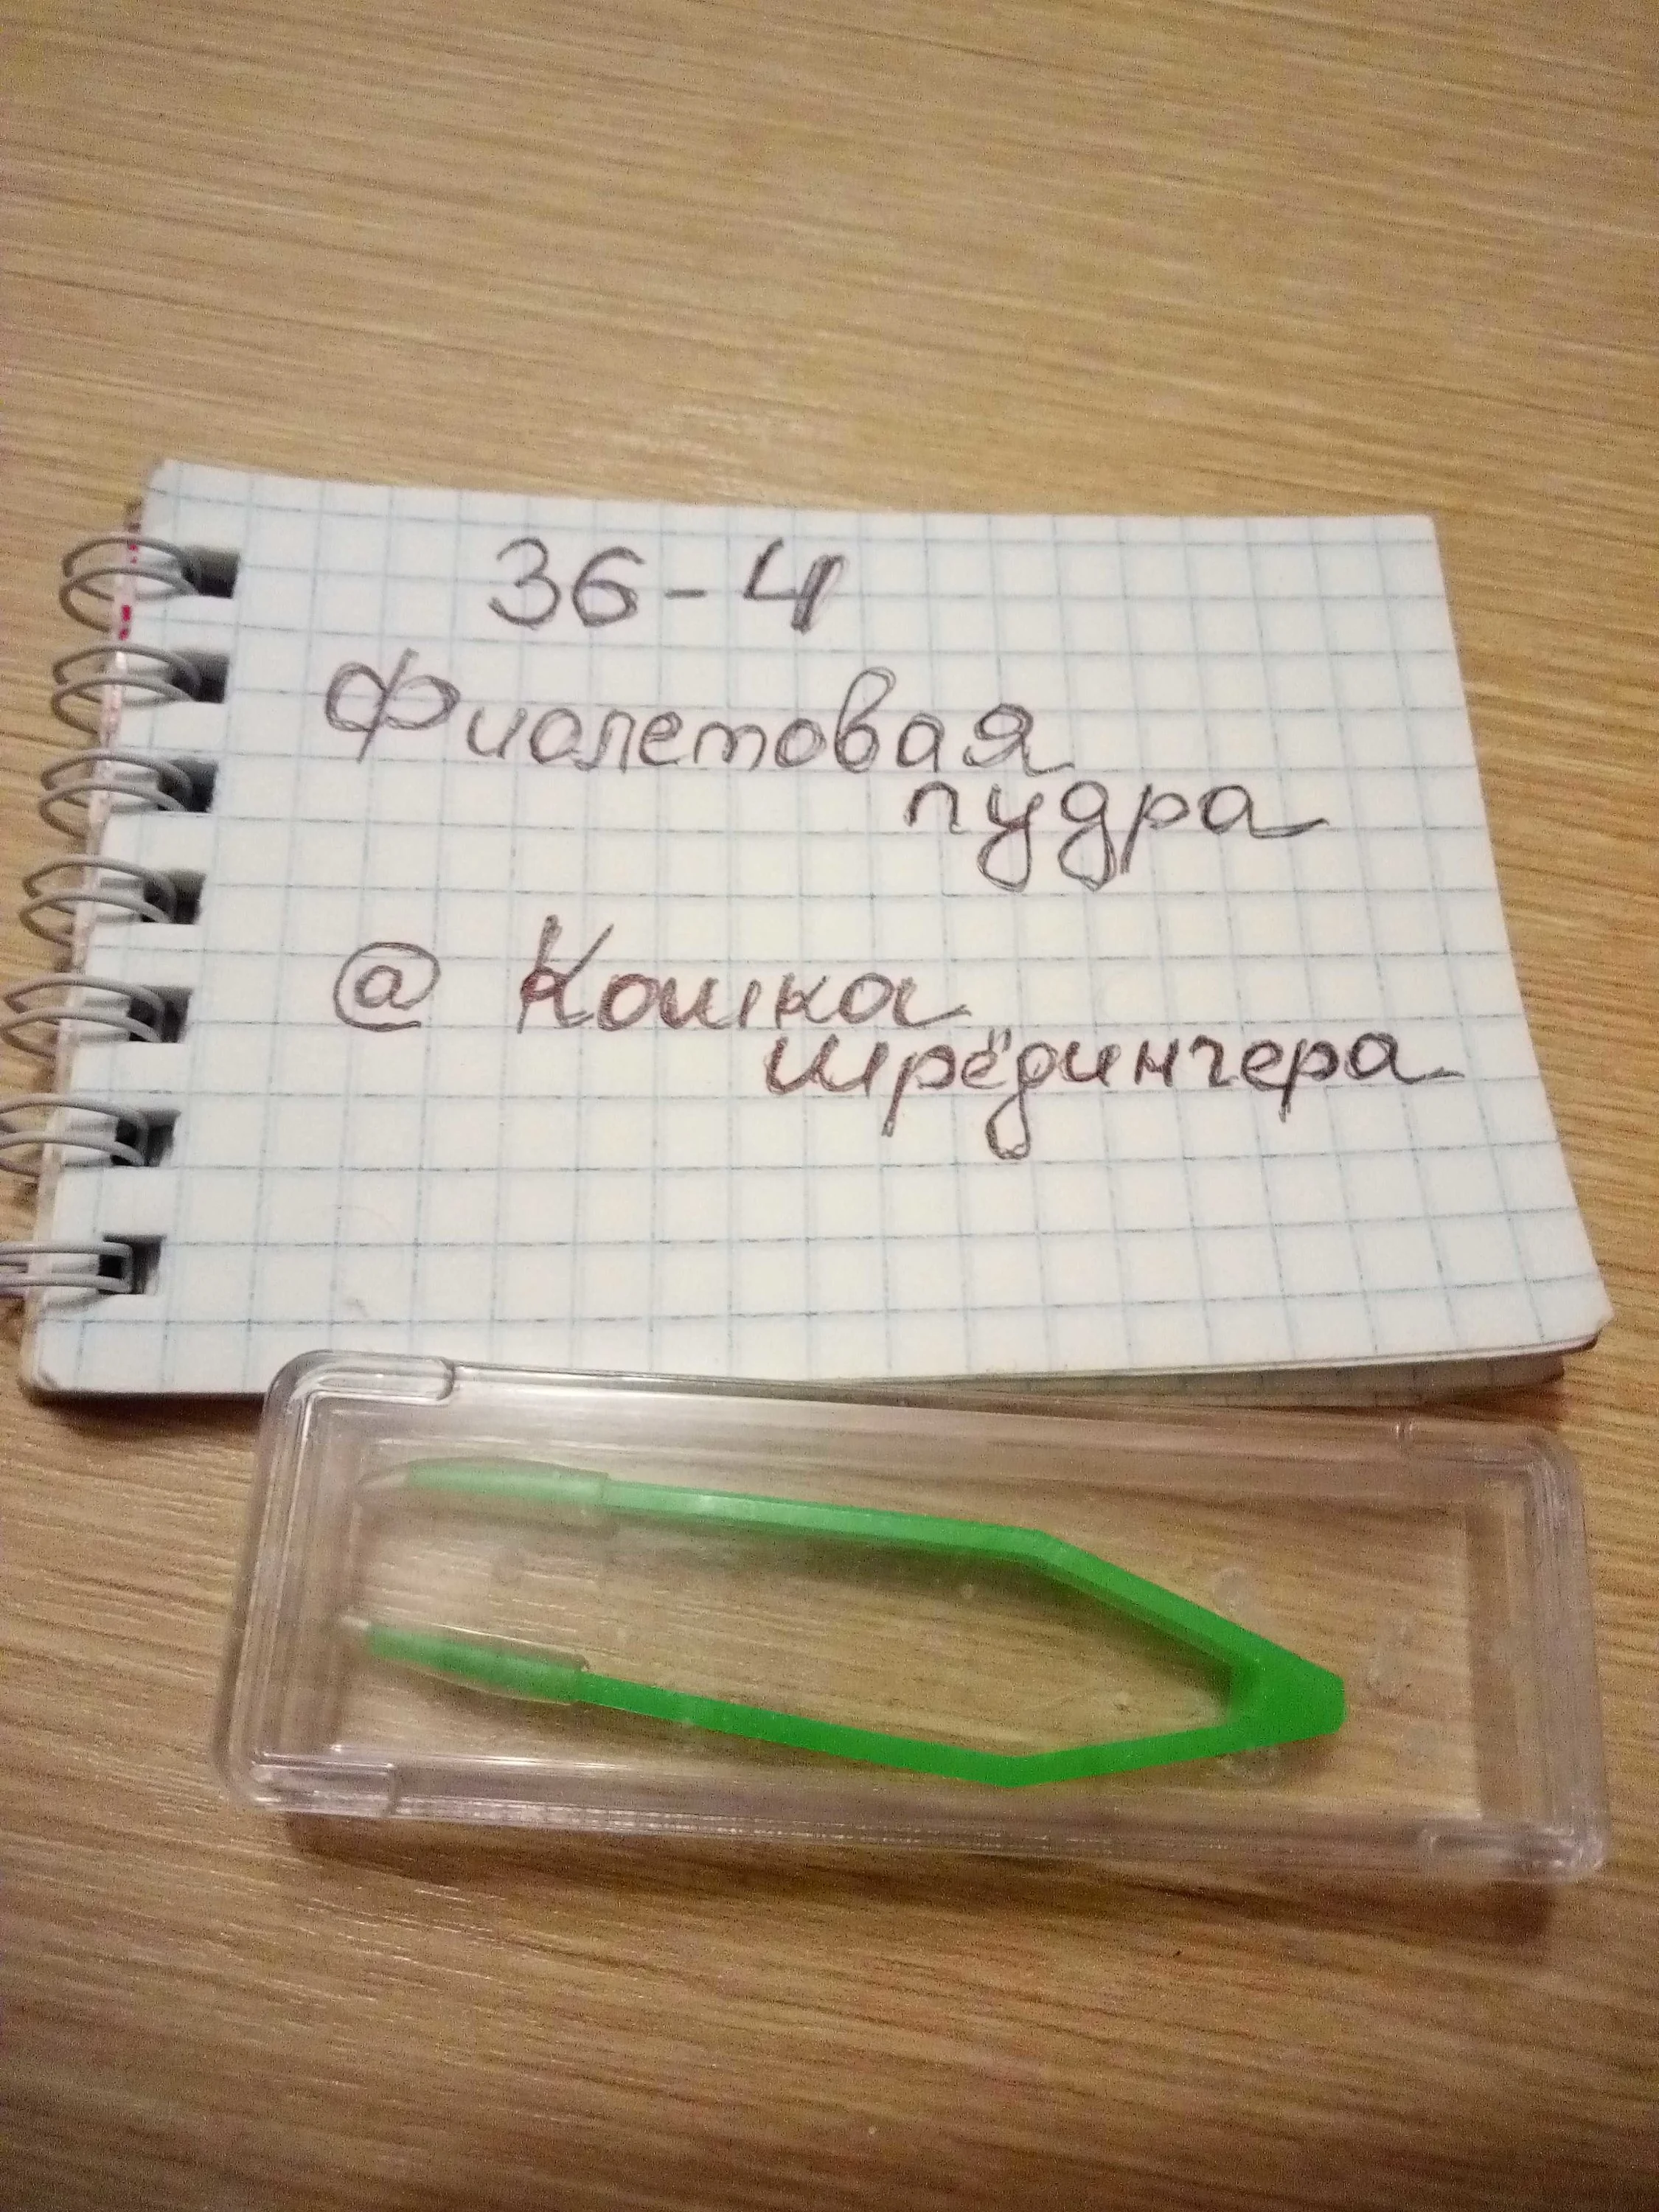 36-4
Фиолетовая
пудра
@ Кошка
шрёдингера